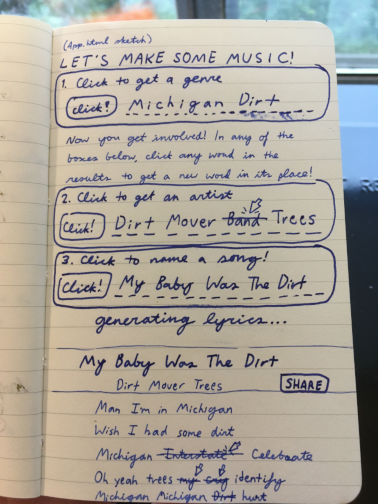 (App.html sketch)
LET'S MAKE SOME MUSIC!
1. Click to get a genre
click! Michigan Dirt
Now you get involved! In any of the
boxes below, click any word in the
results to get a new word in its place!
2. Click to get an artist
Click! Dirt Mover Band Trees
3. Click to name a song!
Click! My Baby Was The Dirt
generating lyrics...
My Baby Was The Dirt
Dirt Mover Trees SHARE
Man I'm in Michigan
Wish I had some dirt
Michigan Interstate Celebrate
Oh yeah trees my identify
Michigan Michigan Dirt hunt